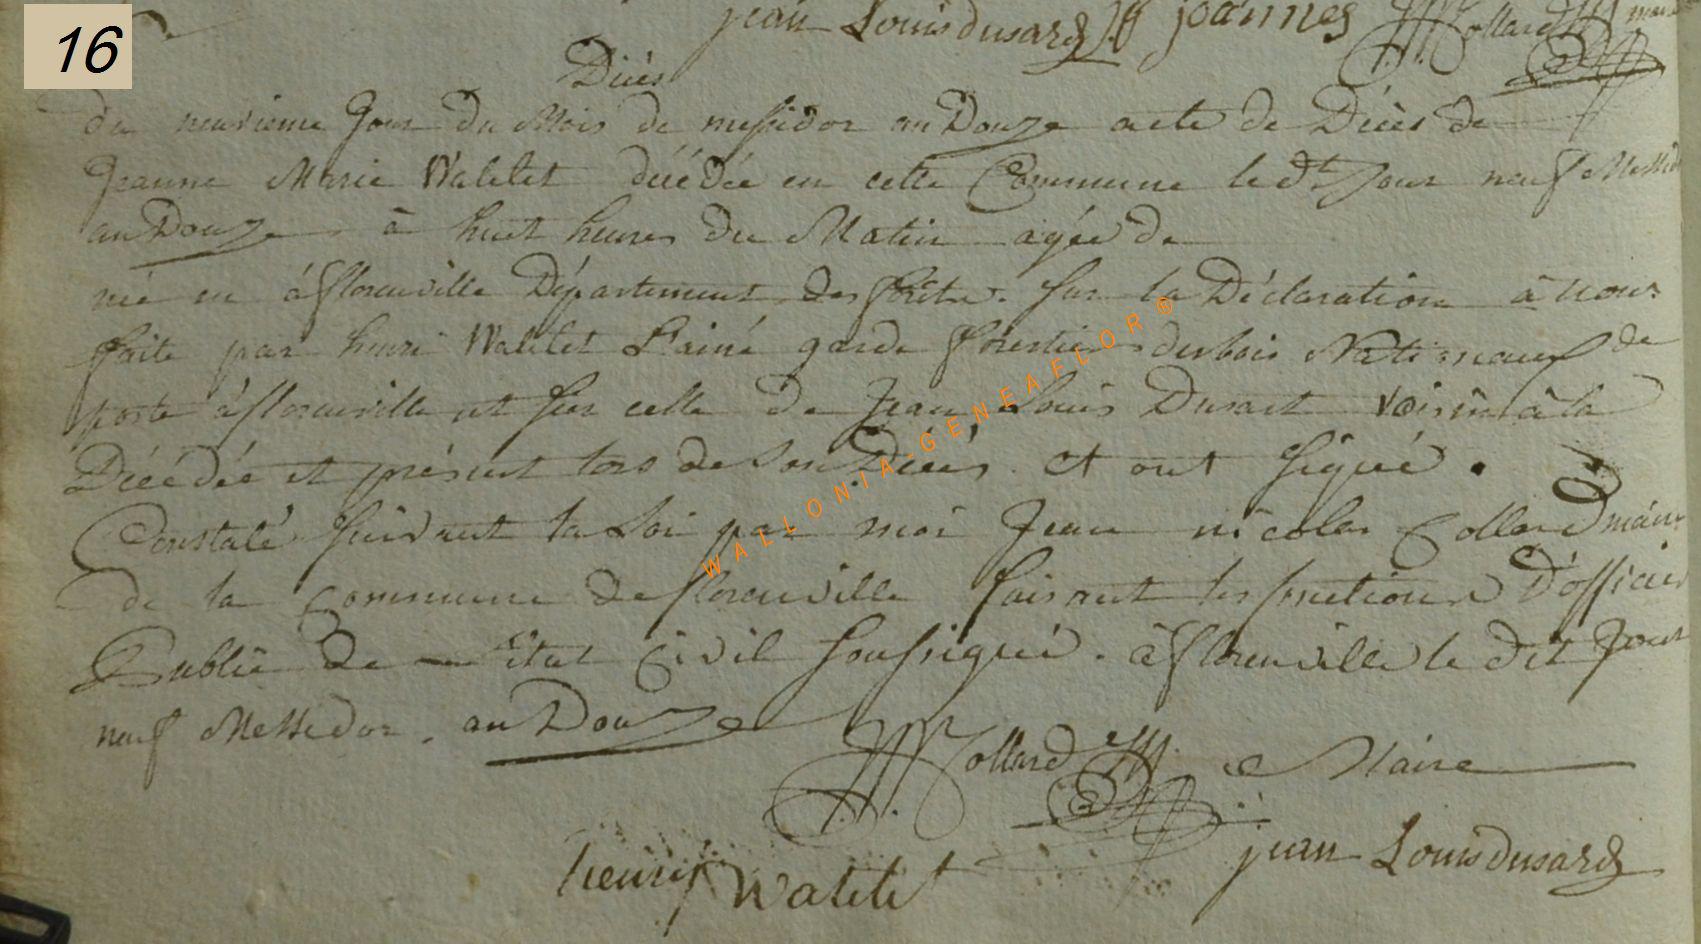 16
jean Louis dusard joannes Collard
Décès
du neuvieme Jour du Mois de messidor an Douze acte de Décès de
Jeanne Marie Watelet décédée en cette Commune le dt Jour neuf Messidor
an Douze à huit heures du Matin agée de
née en à florenville Département des forêts. sur la Déclaration à nous
faite par henri Watelet L'ainé garde forestier des bois Nationaux de
poste à florenville et sur celle de Jean Louis Dusart voisin à la
Décédée et présent lors de son Décès. et ont signé.
Constaté suivant la Loi par moi Jean nicolas Collard maire
de la Commune de florenville faisant les fonctions D'officier
Public de Etat Civil soussigné. à florenville le dit Jour
neuf Messidor. an Douze
Collard Maire
henry Watelet jean Louis dusard
WALLONIA-GENEAFLOR®